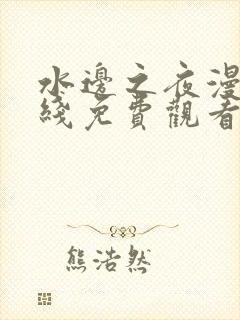 水邊之夜漫
綫免費觀看
熊浩然